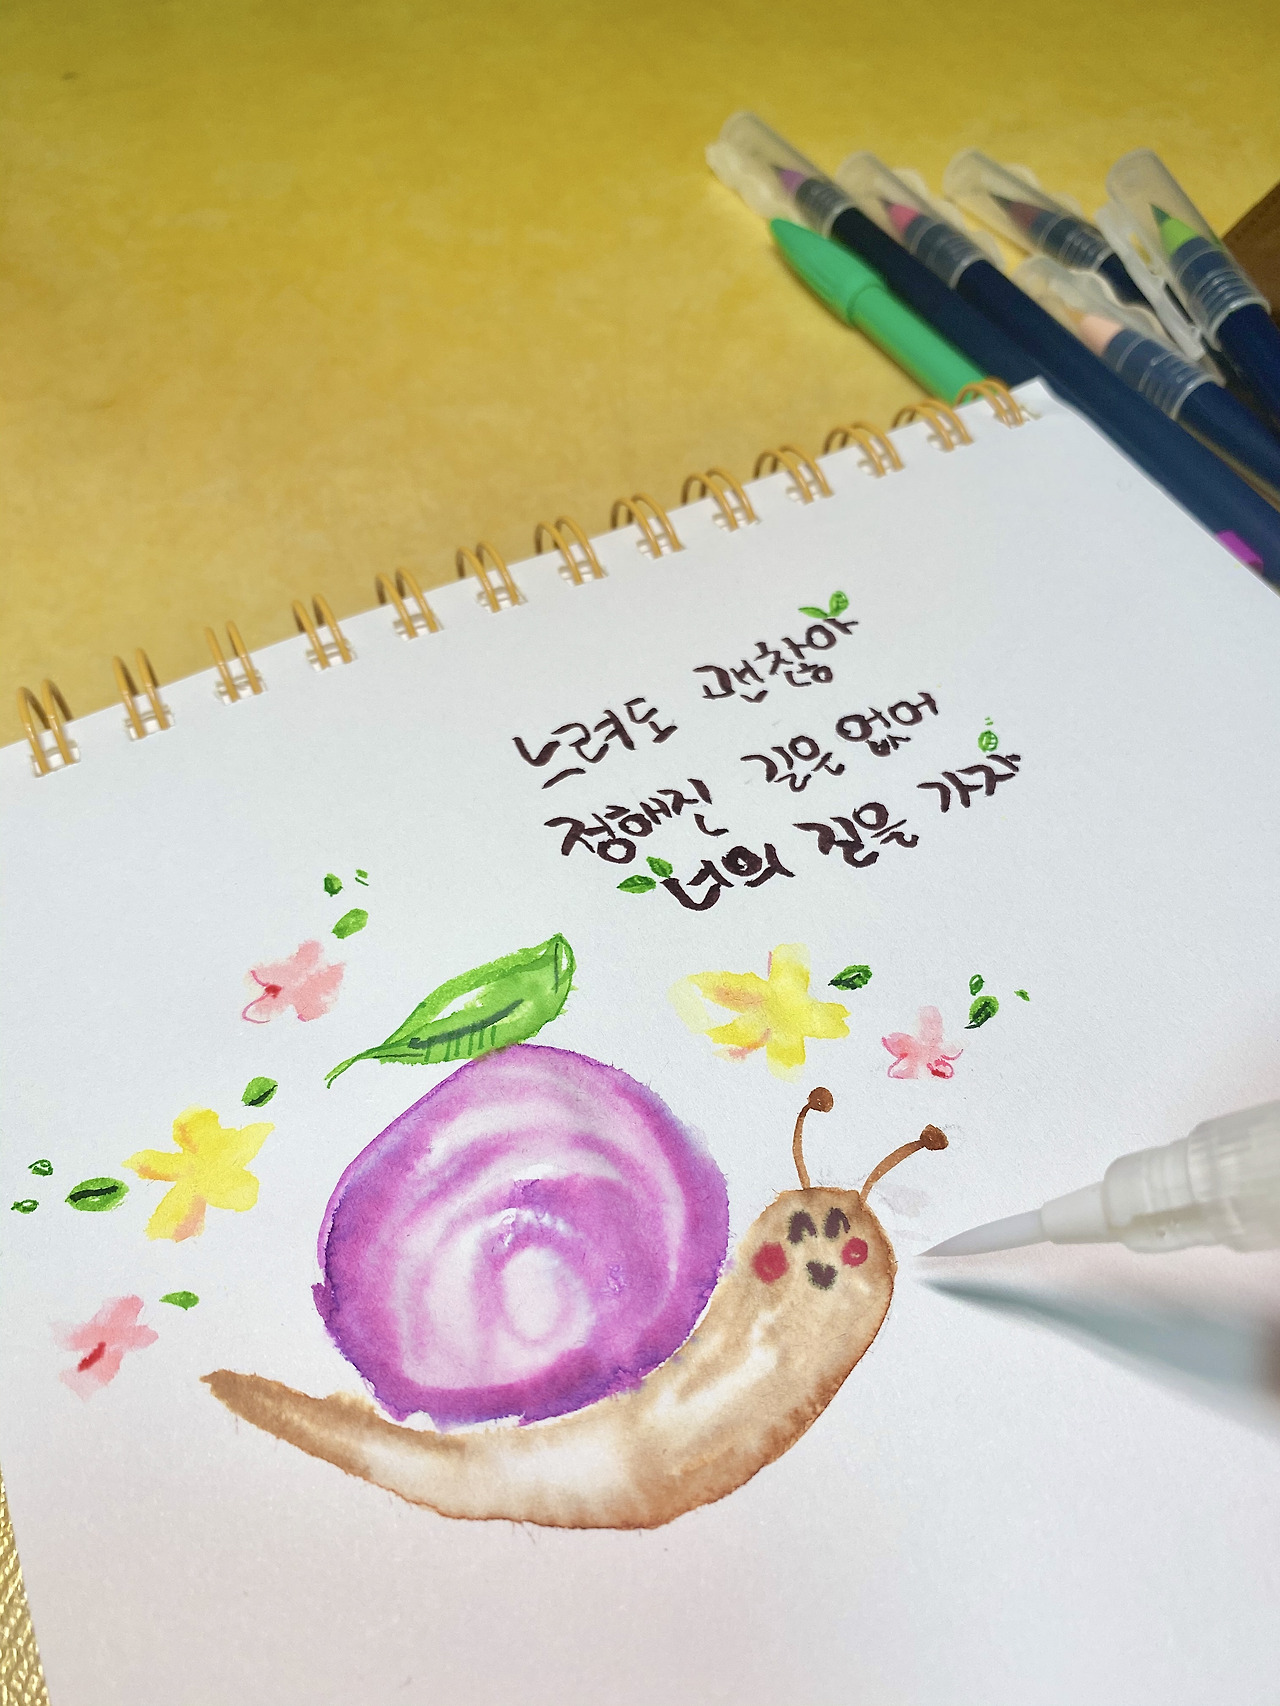 느려도 괜찮아
정해진 길은 없어
너의 길을 가자